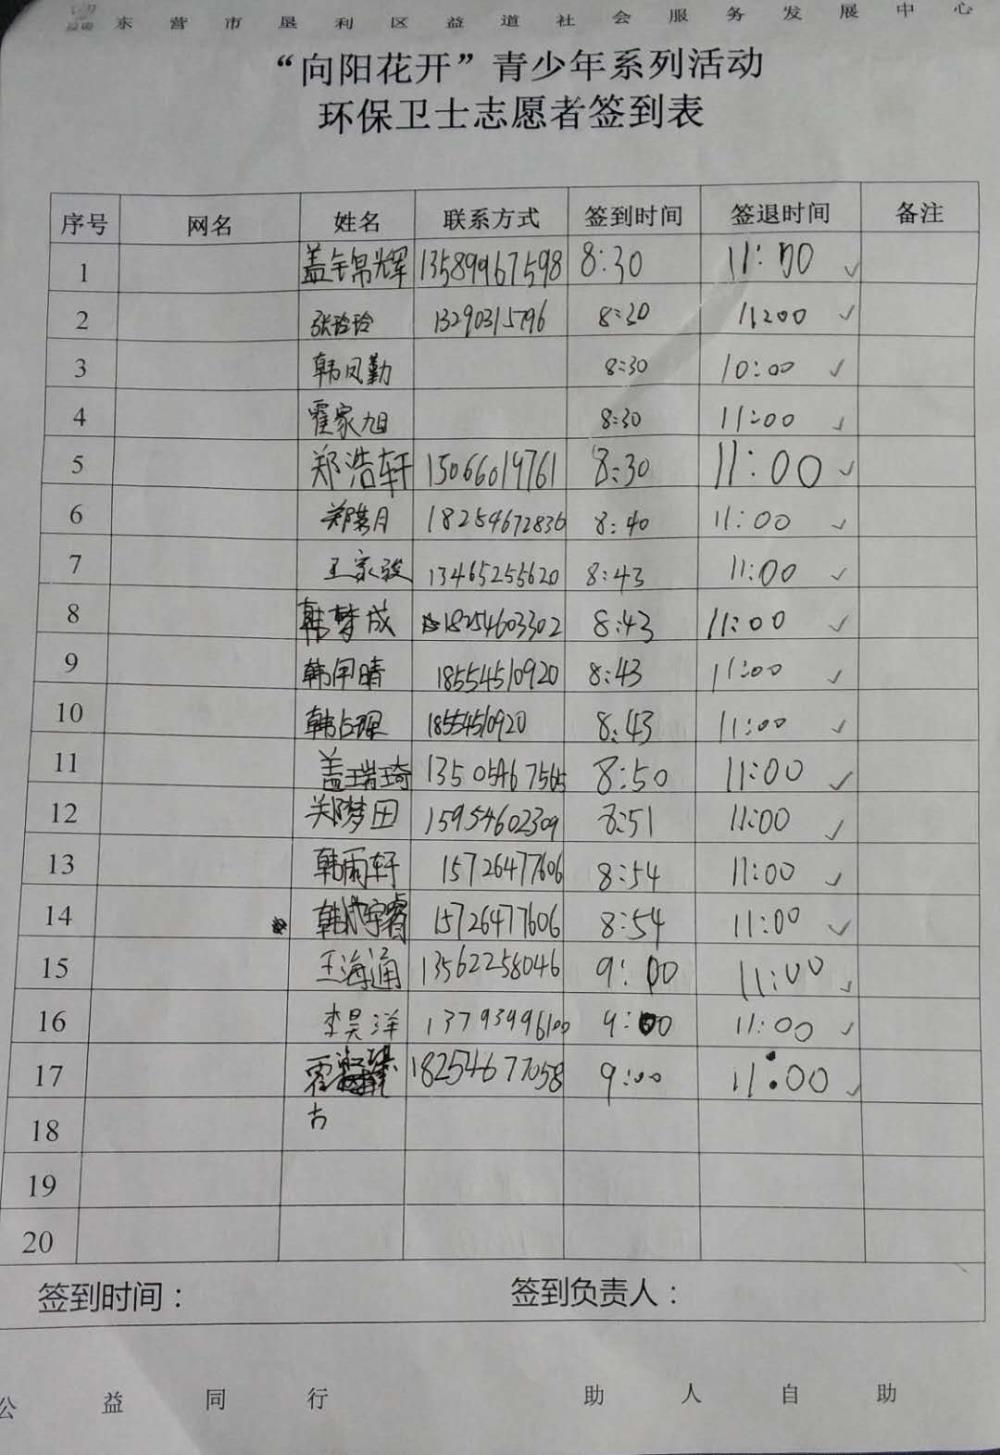 东营市垦利区益道社会服务发展中心
“向阳花开”青少年系列活动
环保卫士志愿者签到表
序号 网名 姓名 联系方式 签到时间 签退时间 备注
1 盖锦辉 13589967598 8:30 11:00 ✓
2 张玲玲 13290315796 8:30 11:00 ✓
3 韩凤勤 8:30 10:00 ✓
4 霍家旭 8:30 11:00 ✓
5 郑浩轩 15066019761 8:30 11:00 ✓
6 18254672836 8:40 11:00 ✓
7 王家骏 13465255620 8:43 11:00 ✓
8 韩梦成 18254603302 8:43 11:00 ✓
9 18554510920 8:43 11:00 ✓
10 18554510920 8:43 11:00 ✓
11 盖瑞琦 13505467565 8:50 11:00 ✓
12 郑梦田 15954602309 8:51 11:00 ✓
13 韩雨轩 15726477606 8:54 11:00 ✓
14 15726477606 8:54 11:00 ✓
15 王海涌 13562258046 9:00 11:00 ✓
16 李昊洋 13793996100 9:00 11:00 ✓
17 霍 18254677058 9:00 11:00 ✓
18
19
20
签到时间： 签到负责人：
公益同行 助人自助